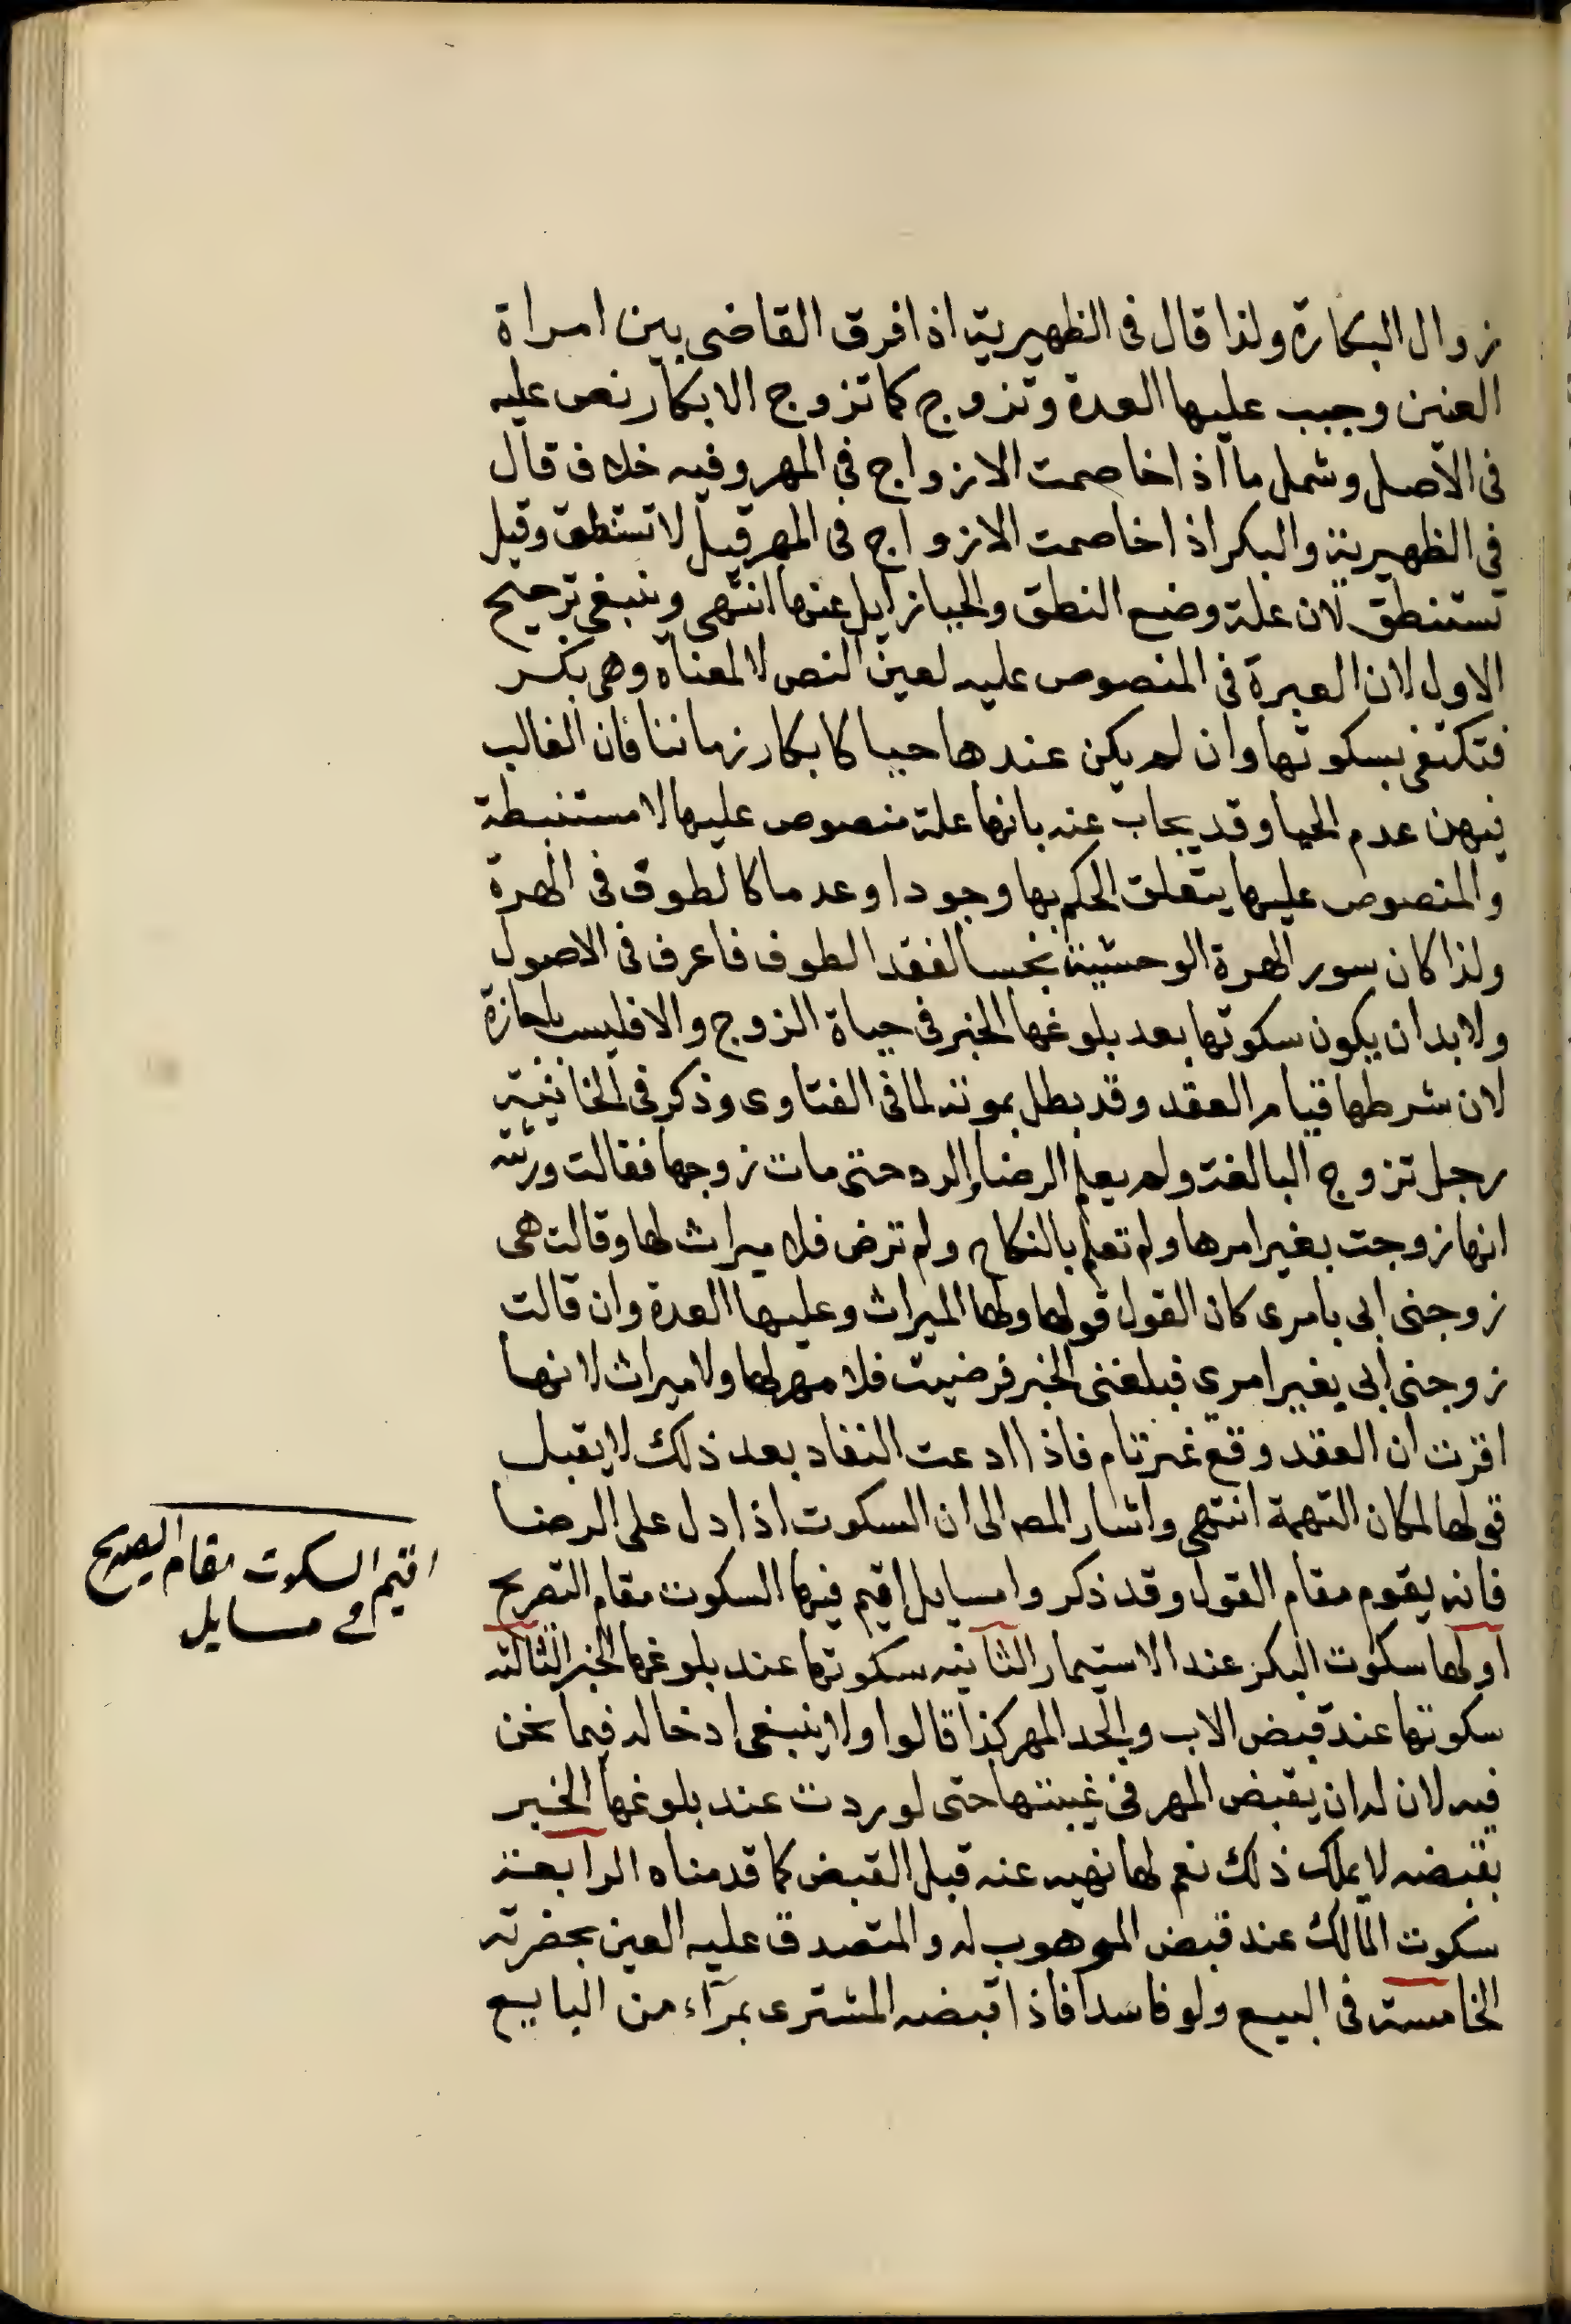 زوال البكارة ولذا قال فى الظهيرية اذا فرق القاضى بين امراة
العنين وجبب عليها العدة وتزوج كما تزوج الابكار نص عليه
فى الاصل وشمل ما اذا خاصمت الازواج فى المهر وفيه خلاف قال
فى الظهيرية والبكر اذا خاصمت الازواج فى المهر قيل لا تستنطق وقيل
تستنطق لان علة وضع النطق والحيا زايل عنها انتهى وينبغى ترجيح
الاول لان العبرة فى المنصوص عليه لعين النص لا لمعناه وهى بكر
فتكتفى بسكوتها وان لم يكن عندها حيا كابكار زماننا فان الغالب
فيهن عدم الحيا وقد يجاب عنه بانها علة منصوص عليها لا مستنبطة
والمنصوص عليها يتعلق الحكم بها وجودا وعدما كالطوف فى الهرة
ولذا كان سور الهرة الوحشية نجسا لفقد الطوف فاعرف فى الاصول
ولا بد ان يكون سكوتها بعد بلوغها الخبر فى حياة الزوج والا فليس باجازة
لان شرطها قيام العقد وقد بطل بموته لما فى الفتاوى وذكر فى الخانية
رجل تزوج البالغة ولم يعلم الرضا والرد حتى مات زوجها فقالت ورثته
انها زوجت بغير امرها ولم تعلم بالنكاح ولم ترض فلا ميراث لها وقالت هى
زوجنى ابى بامرى كان القول قولها ولها الميراث وعليها العدة وان قالت
زوجنى ابى بغير امرى فبلغنى الخبر فرضيت فلا مهر لها ولا ميراث لانها
اقرت ان العقد وقع غير تام فاذا ادعت النفاد بعد ذلك لا يقبل
قولها لمكان التهمة انتهى واشار المص الى ان السكوت اذا دل على الرضا
فانه يقوم مقام القول وقد ذكروا مسايل اقيم فيها السكوت مقام التصريح
اولها سكوت البكر عند الاستيمار الثانيه سكوتها عند بلوغها الخبر الثالثه
سكوتها عند قبض الاب والجد المهر كذا قالوا ولا ينبغى ادخاله فيما نحن
فيه لان له ان يقبض المهر فى غيبتها حتى لو ردت عند بلوغها الخبر
بقبضه لا يملك ذلك نعم لها نهيه عنه قبل القبض كما قدمناه الرابعة
سكوت المالك عند قبض الموهوب له والمتصدق عليه العين بحضرته
الخامسة فى البيع ولو فاسدا فاذا قبضه المشترى بمرآء من البايع
اقيم السكوت مقام التصريح
فى مسايل